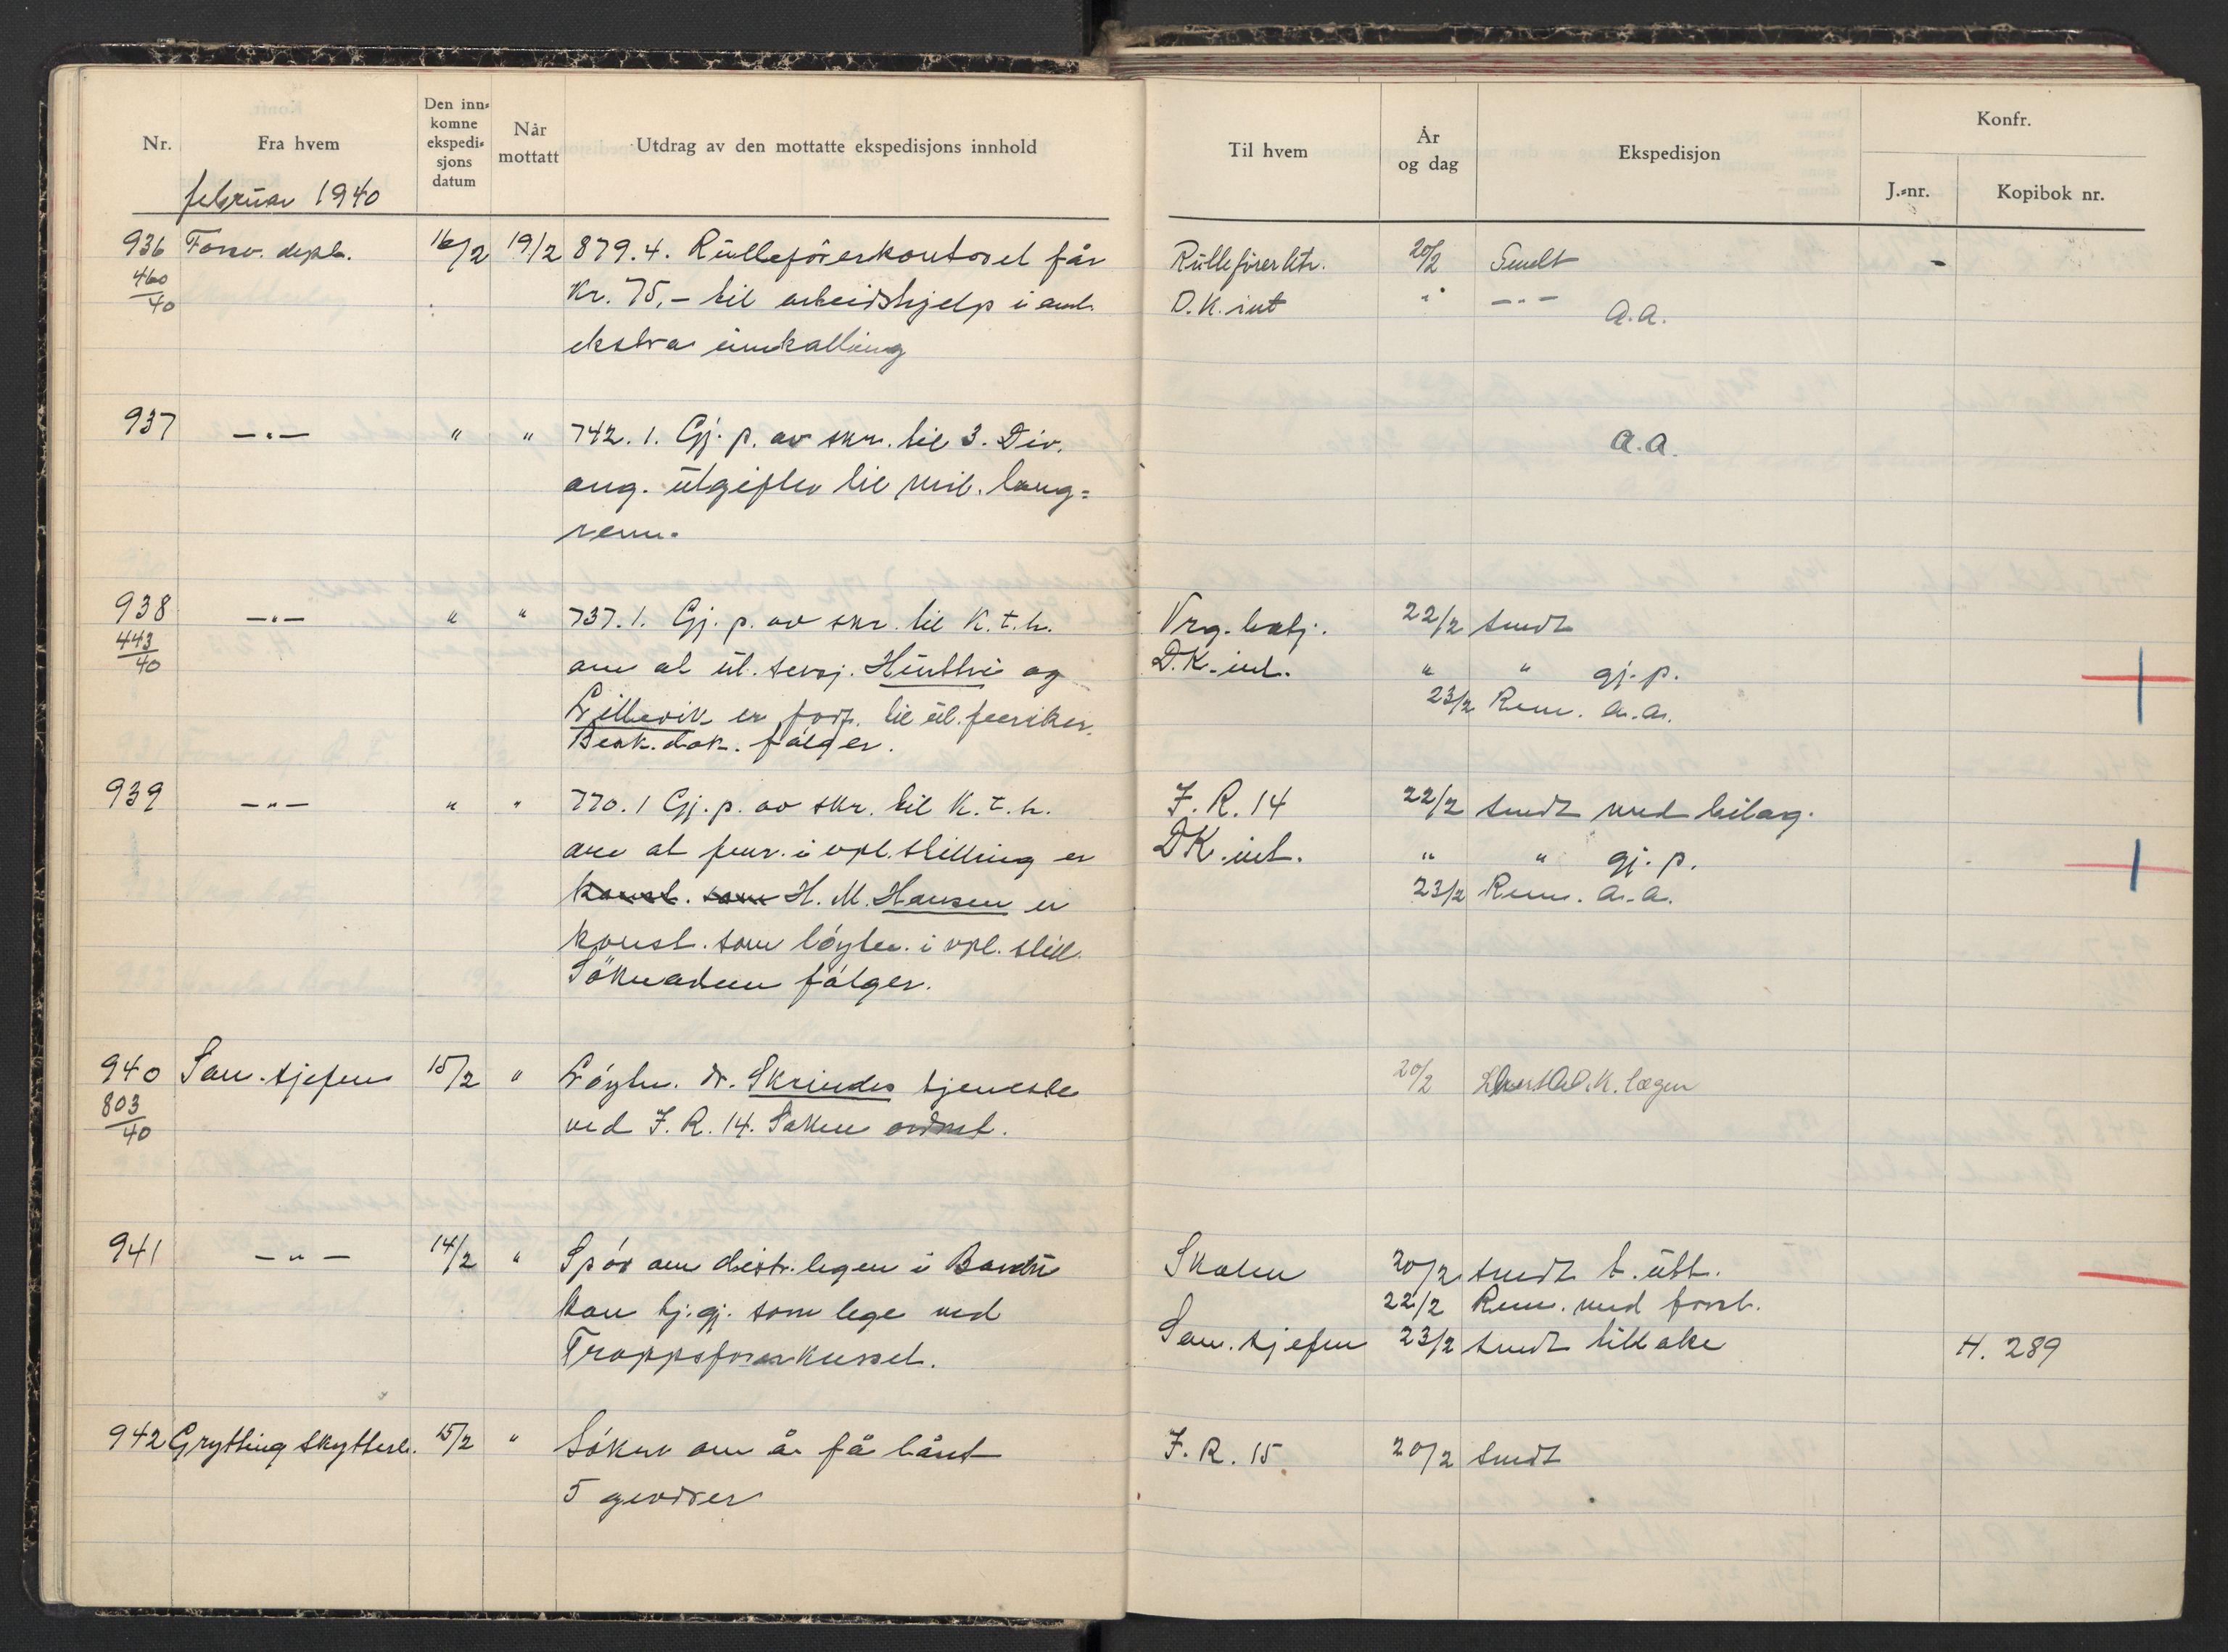 Nr.
Fra hvem
Den inn-
komne
ekspedi-
sjons
datum
Når
mottatt
Utdrag av den mottatte ekspedisjons innhold
Til hvem
År
og dag
Ekspedisjon
Konfr.
J.-nr.
Kopibok nr.
februar 1940
936 Forsv. dept. 16/2 19/2 879.4. Rulleförerkontoret får Rulleförerktr. 20/2 Sendt -
460/40 Kr. 75,- til arbeidshjelp i anl. D.K. int " -"- a.a.
ekstra innkalling
937 -"- " " 742.1. Gj. p. av skr. til 3. Div. a.a.
ang. utgifter til mil. lang-
renn.
938 -"- " " 737.1. Gj. p. av skr. til K.t.h. Vrg. batj. 22/2 sendt
443/40 om at ut. sersj. og D.K. int. " " gj. p.
Lillevik er forf. til ut. furiker. 23/2 Rem. a.a.
Besk. dok. följer.
939 -"- " " 770.1 Gj. p. av skr. til K.t.h. I.R. 14 22/2 sendt med bilag.
om at fenr. i vpl. stilling er DK. int. " " gj. p.
konst. som H. M. Hansen er 23/2 Rem. a.a.
konst. som löytn. i vpl. still.
Söknaden fölger.
940 San. sjefen 15/2 " Löytn. dr. Skrindes tjeneste 20/2 D.K. lægen
803/40 ved I.R. 14. Saken ordnet.
941 -"- 14/2 " Spör om distr. legen i Bardu Skolen 20/2 sendt t. utt.
kan tj. gj. som lege ved 22/2 Rem. med forsl.
Troppsförerkurset. San. sjefen 23/2 sendt tilbake H. 289
942 Grytting skytterl. 15/2 " Söker om å få lånt I.R. 15 20/2 sendt
5 geværer